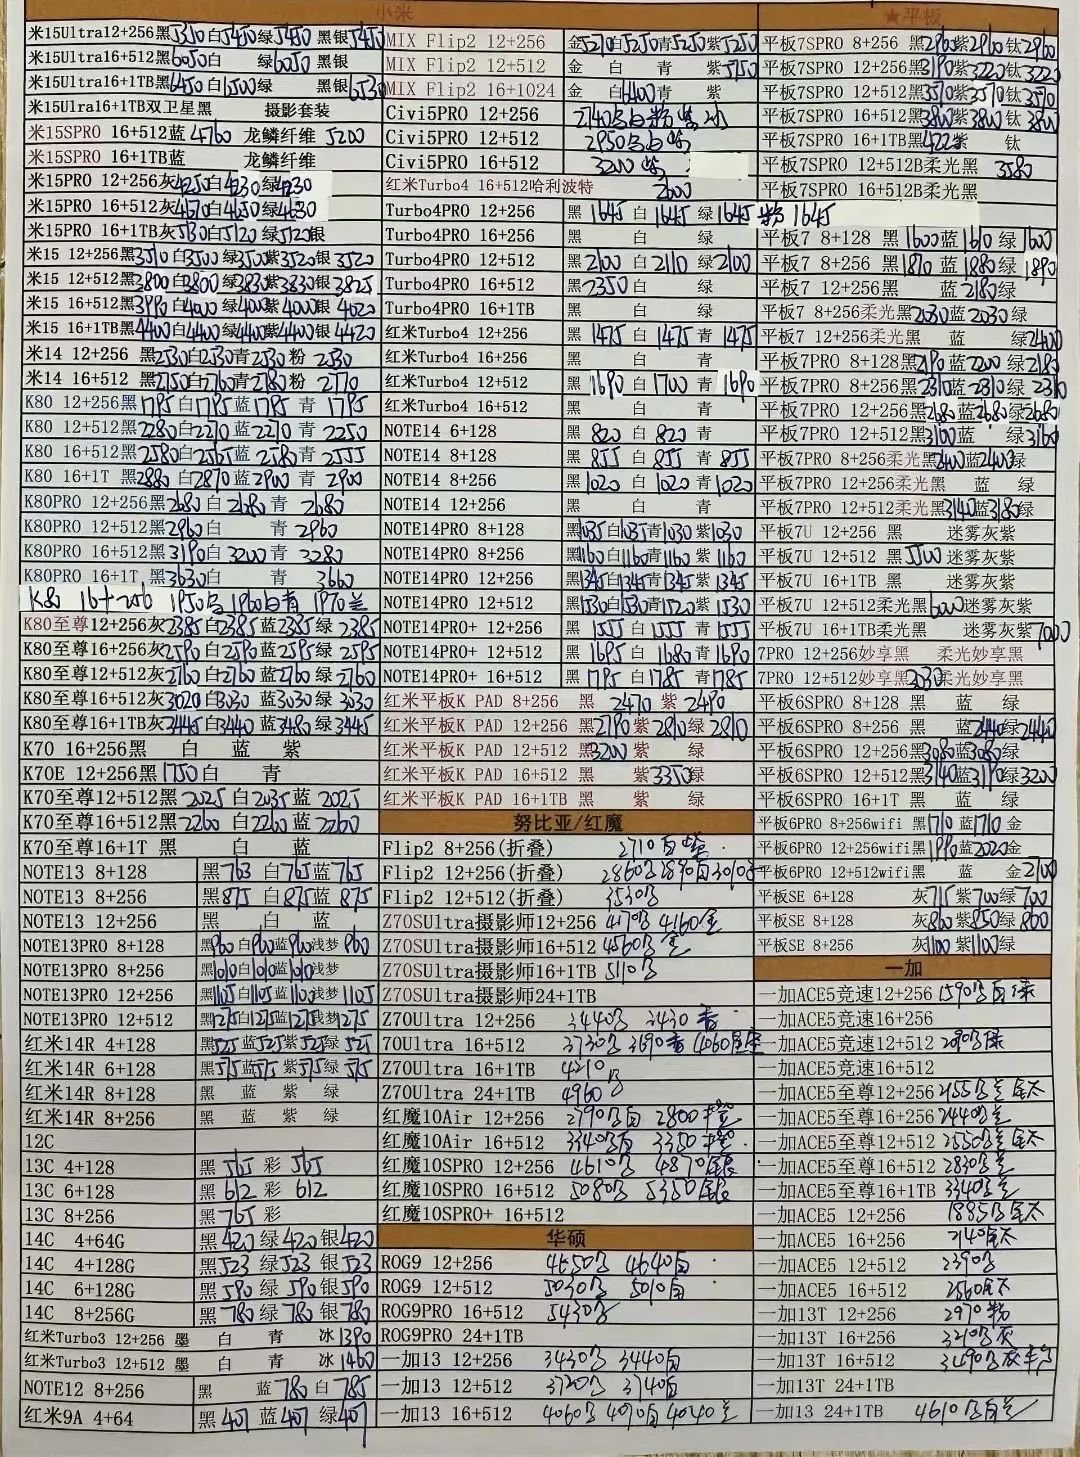 小米
米15Ultra12+256黑5350白5450绿5450 黑银5450
米15Ultra16+512黑6050白 绿6050 黑银
米15Ultra16+1TB黑6450白1500绿 黑银6530
米15Ulra16+1TB双卫星黑 摄影套装
米15SPRO 16+512蓝 4760 龙鳞纤维 5200
米15SPRO 16+1TB蓝 龙鳞纤维
米15PRO 12+256灰4250白4230绿4230
米15PRO 16+512灰4670白4650绿4630
米15PRO 16+1TB灰5130白5120绿5120银
米15 12+256黑3510白3500绿3500紫3520银 3520
米15 12+512黑3800白3800绿3830紫3830银 3825
米15 16+512黑3990白4000绿4000紫4000银 4020
米15 16+1TB黑4400白4400绿4400紫4400银 4420
米14 12+256 黑2530白2530青2530 粉 2530
米14 16+512 黑2750白2760青2780粉 2770
K80 12+256黑1795白1795蓝1795 青 1795
K80 12+512黑2280白2270蓝2270青 2250
K80 16+512黑2580白2565蓝2580青 2555
K80 16+1T 黑2880白2870蓝2900 青 2900
K80PRO 12+256黑2680白2680青 2680
K80PRO 12+512黑2960白 青 2960
K80PRO 16+512黑3190白3200青 3280
K80PRO 16+1T 黑3630白 青 3660
K80 16+256 1950黑 1960白青 1970蓝
K80至尊12+256灰2385白2385蓝2385绿 2385
K80至尊16+256灰2590白2590蓝2595绿 2595
K80至尊12+512灰2760白2760蓝2760绿 2760
K80至尊16+512灰3020白3030蓝3030绿 3030
K80至尊16+1TB灰3445白3440蓝3480绿3445
K70 16+256黑 白 蓝 紫
K70E 12+256黑1750白 青
K70至尊12+512黑 2025 白2035蓝 2025
K70至尊16+512黑2260 白2260蓝 2260
K70至尊16+1T 黑 白 蓝
NOTE13 8+128 黑763 白765蓝 765
NOTE13 8+256 黑875 白875蓝 875
NOTE13 12+256 黑 白 蓝
NOTE13PRO 8+128 黑960白960蓝960浅梦 960
NOTE13PRO 8+256 黑1010白1010蓝1010浅梦
NOTE13PRO 12+256 黑1105白1105蓝1100浅梦1105
NOTE13PRO 12+512 黑1275白1275蓝1275浅梦1275
红米14R 4+128 黑525蓝525紫525绿 525
红米14R 6+128 黑575蓝575紫575绿 575
红米14R 8+128 黑 蓝 紫 绿
红米14R 8+256 黑 蓝 紫 绿
12C
13C 4+128 黑 565 彩 565
13C 6+128 黑 612 彩 612
13C 8+256 黑 765 彩
14C 4+64G 黑 420 绿 420 银420
14C 4+128G 黑 523 绿523 银 523
14C 6+128G 黑590 绿 590 银590
14C 8+256G 黑 780 绿 780 银 780
红米Turbo3 12+256 墨 白 青 冰1390
红米Turbo3 12+512 墨 白 青 冰1460
NOTE12 8+256 黑 蓝780 白 785
红米9A 4+64 黑 407 蓝407 绿407
MIX Flip2 12+256 金5270白5250青5250紫5250
MIX Flip2 12+512 金 白 青 紫5750
MIX Flip2 16+1024 金 白6400青 紫
Civi5PRO 12+256 2740
Civi5PRO 12+512 2950黑白紫
Civi5PRO 16+512 3200 紫
红米Turbo4 16+512哈利波特 2600
Turbo4PRO 12+256 黑 1645 白 1645 绿 1645 粉 1645
Turbo4PRO 16+256 黑 白 绿
Turbo4PRO 12+512 黑2100 白 2110 绿 2100
Turbo4PRO 16+512 黑2350 白 绿
Turbo4PRO 16+1TB 黑 白 绿
红米Turbo4 12+256 黑 1475 白 1475 青 1475
红米Turbo4 16+256 黑 白 青
红米Turbo4 12+512 黑1690 白 1700 青 1690
红米Turbo4 16+512 黑 白 青
NOTE14 6+128 黑 820 白 820 青
NOTE14 8+128 黑 855 白 855 青 855
NOTE14 8+256 黑1020 白 1020 青1020
NOTE14 12+256 黑 白 青
NOTE14PRO 8+128 黑1035白1035青1030紫1030
NOTE14PRO 8+256 黑1160白1160青1160 紫 1160
NOTE14PRO 12+256 黑1345白1345青1345紫 1345
NOTE14PRO 12+512 黑1530白1530青1520紫 1530
NOTE14PRO+ 12+256 黑 1555 白 1555 青1555
NOTE14PRO+ 12+512 黑 1695 白 1680 青 1690
NOTE14PRO+ 16+512 黑 1795 白 1785 青1785
红米平板K PAD 8+256 黑 2470 紫 2490
红米平板K PAD 12+256 黑2790紫2810绿 2810
红米平板K PAD 12+512 黑3200紫 绿
红米平板K PAD 16+512 黑 紫3350绿
红米平板K PAD 16+1TB 黑 紫 绿
努比亚/红魔
Flip2 8+256(折叠) 2710 白 紫
Flip2 12+256(折叠) 2860
Flip2 12+512(折叠) 3530黑
Z70SUltra摄影师12+256 4170黑 4160金
Z70SUltra摄影师16+512 4560黑 金
Z70SUltra摄影师16+1TB 5110黑
Z70SUltra摄影师24+1TB
Z70Ultra 12+256 3440黑 3430 青
70Ultra 16+512 3730黑 3690青 4060星空
Z70Ultra 16+1TB 4210黑
Z70Ultra 24+1TB 4960
红魔10Air 12+256 2790黑白 2800
红魔10Air 16+512 3340黑白 3350
红魔10SPRO 12+256 4610黑 4870银
红魔10SPRO 16+512 5080黑 5350银
红魔10SPRO+ 16+512
华硕
ROG9 12+256 4550黑 4640白
ROG9 12+512 5030黑 5010白
ROG9PRO 16+512 5430黑
ROG9PRO 24+1TB
一加13 12+256 3430黑 3440白
一加13 12+512 3720黑 3740白
一加13 16+512 4060黑 4070白4040蓝
★平板
平板7SPRO 8+256 黑2960紫2960钛2960
平板7SPRO 12+256黑3190紫3220钛3220
平板7SPRO 12+512黑3570紫3570钛3570
平板7SPRO 16+512黑3800紫3800钛3800
平板7SPRO 16+1TB黑4222紫 钛
平板7SPRO 12+512B柔光黑 3580
平板7SPRO 16+512B柔光黑
平板7 8+128 黑1600蓝1610 绿 1600
平板7 8+256 黑1870 蓝 1880绿 1890
平板7 12+256黑 蓝 2180绿
平板7 8+256柔光黑2030蓝2030绿
平板7 12+256柔光黑 蓝 绿2400
平板7PRO 8+128黑2190蓝2200 绿2180
平板7PRO 8+256黑2310蓝2310 绿 2310
平板7PRO 12+256黑2680蓝2680绿2680
平板7PRO 12+512黑3100蓝 绿3160
平板7PRO 8+256柔光黑2400蓝2400绿
平板7PRO 12+256柔光黑 蓝 绿
平板7PRO 12+512柔光黑3140蓝3180绿
平板7U 12+256 黑 迷雾灰紫
平板7U 12+512 黑5500迷雾灰紫
平板7U 16+1TB 黑 迷雾灰紫
平板7U 12+512柔光黑6000迷雾灰紫
平板7U 16+1TB柔光黑 迷雾灰紫7000
7PRO 12+256妙享黑 柔光妙享黑
7PRO 12+512妙享黑3030柔光妙享黑
平板6SPRO 8+128 黑 蓝 绿
平板6SPRO 8+256 黑 蓝2440绿2440
平板6SPRO 12+256黑3080蓝3080绿
平板6SPRO 12+512黑3140蓝3190绿3200
平板6SPRO 16+1T 黑 蓝 绿
平板6PRO 8+256wifi 黑1710 蓝1710 金
平板6PRO 12+256wifi黑1990蓝2020金
平板6PRO 12+512wifi黑 蓝 金2700
平板SE 6+128 灰715紫700绿700
平板SE 8+128 灰860 紫850绿 860
平板SE 8+256 灰1100 紫1100绿
一加
一加ACE5竞速12+256 1590黑白绿
一加ACE5竞速16+256
一加ACE5竞速12+512 2090黑绿
一加ACE5竞速16+512
一加ACE5至尊12+256 2155黑蓝钛
一加ACE5至尊16+256 2440黑蓝
一加ACE5至尊12+512 2550黑钛
一加ACE5至尊16+512 2830黑蓝
一加ACE5至尊16+1TB 3340黑蓝
一加ACE5 12+256 1885黑钛
一加ACE5 16+256 2140钛
一加ACE5 12+512 2390黑
一加ACE5 16+512 2560钛
一加13T 12+256 2970 粉
一加13T 16+256 3210黑灰
一加13T 16+512 3490黑灰粉
一加13T 24+1TB
一加13 24+1TB 4610黑白蓝